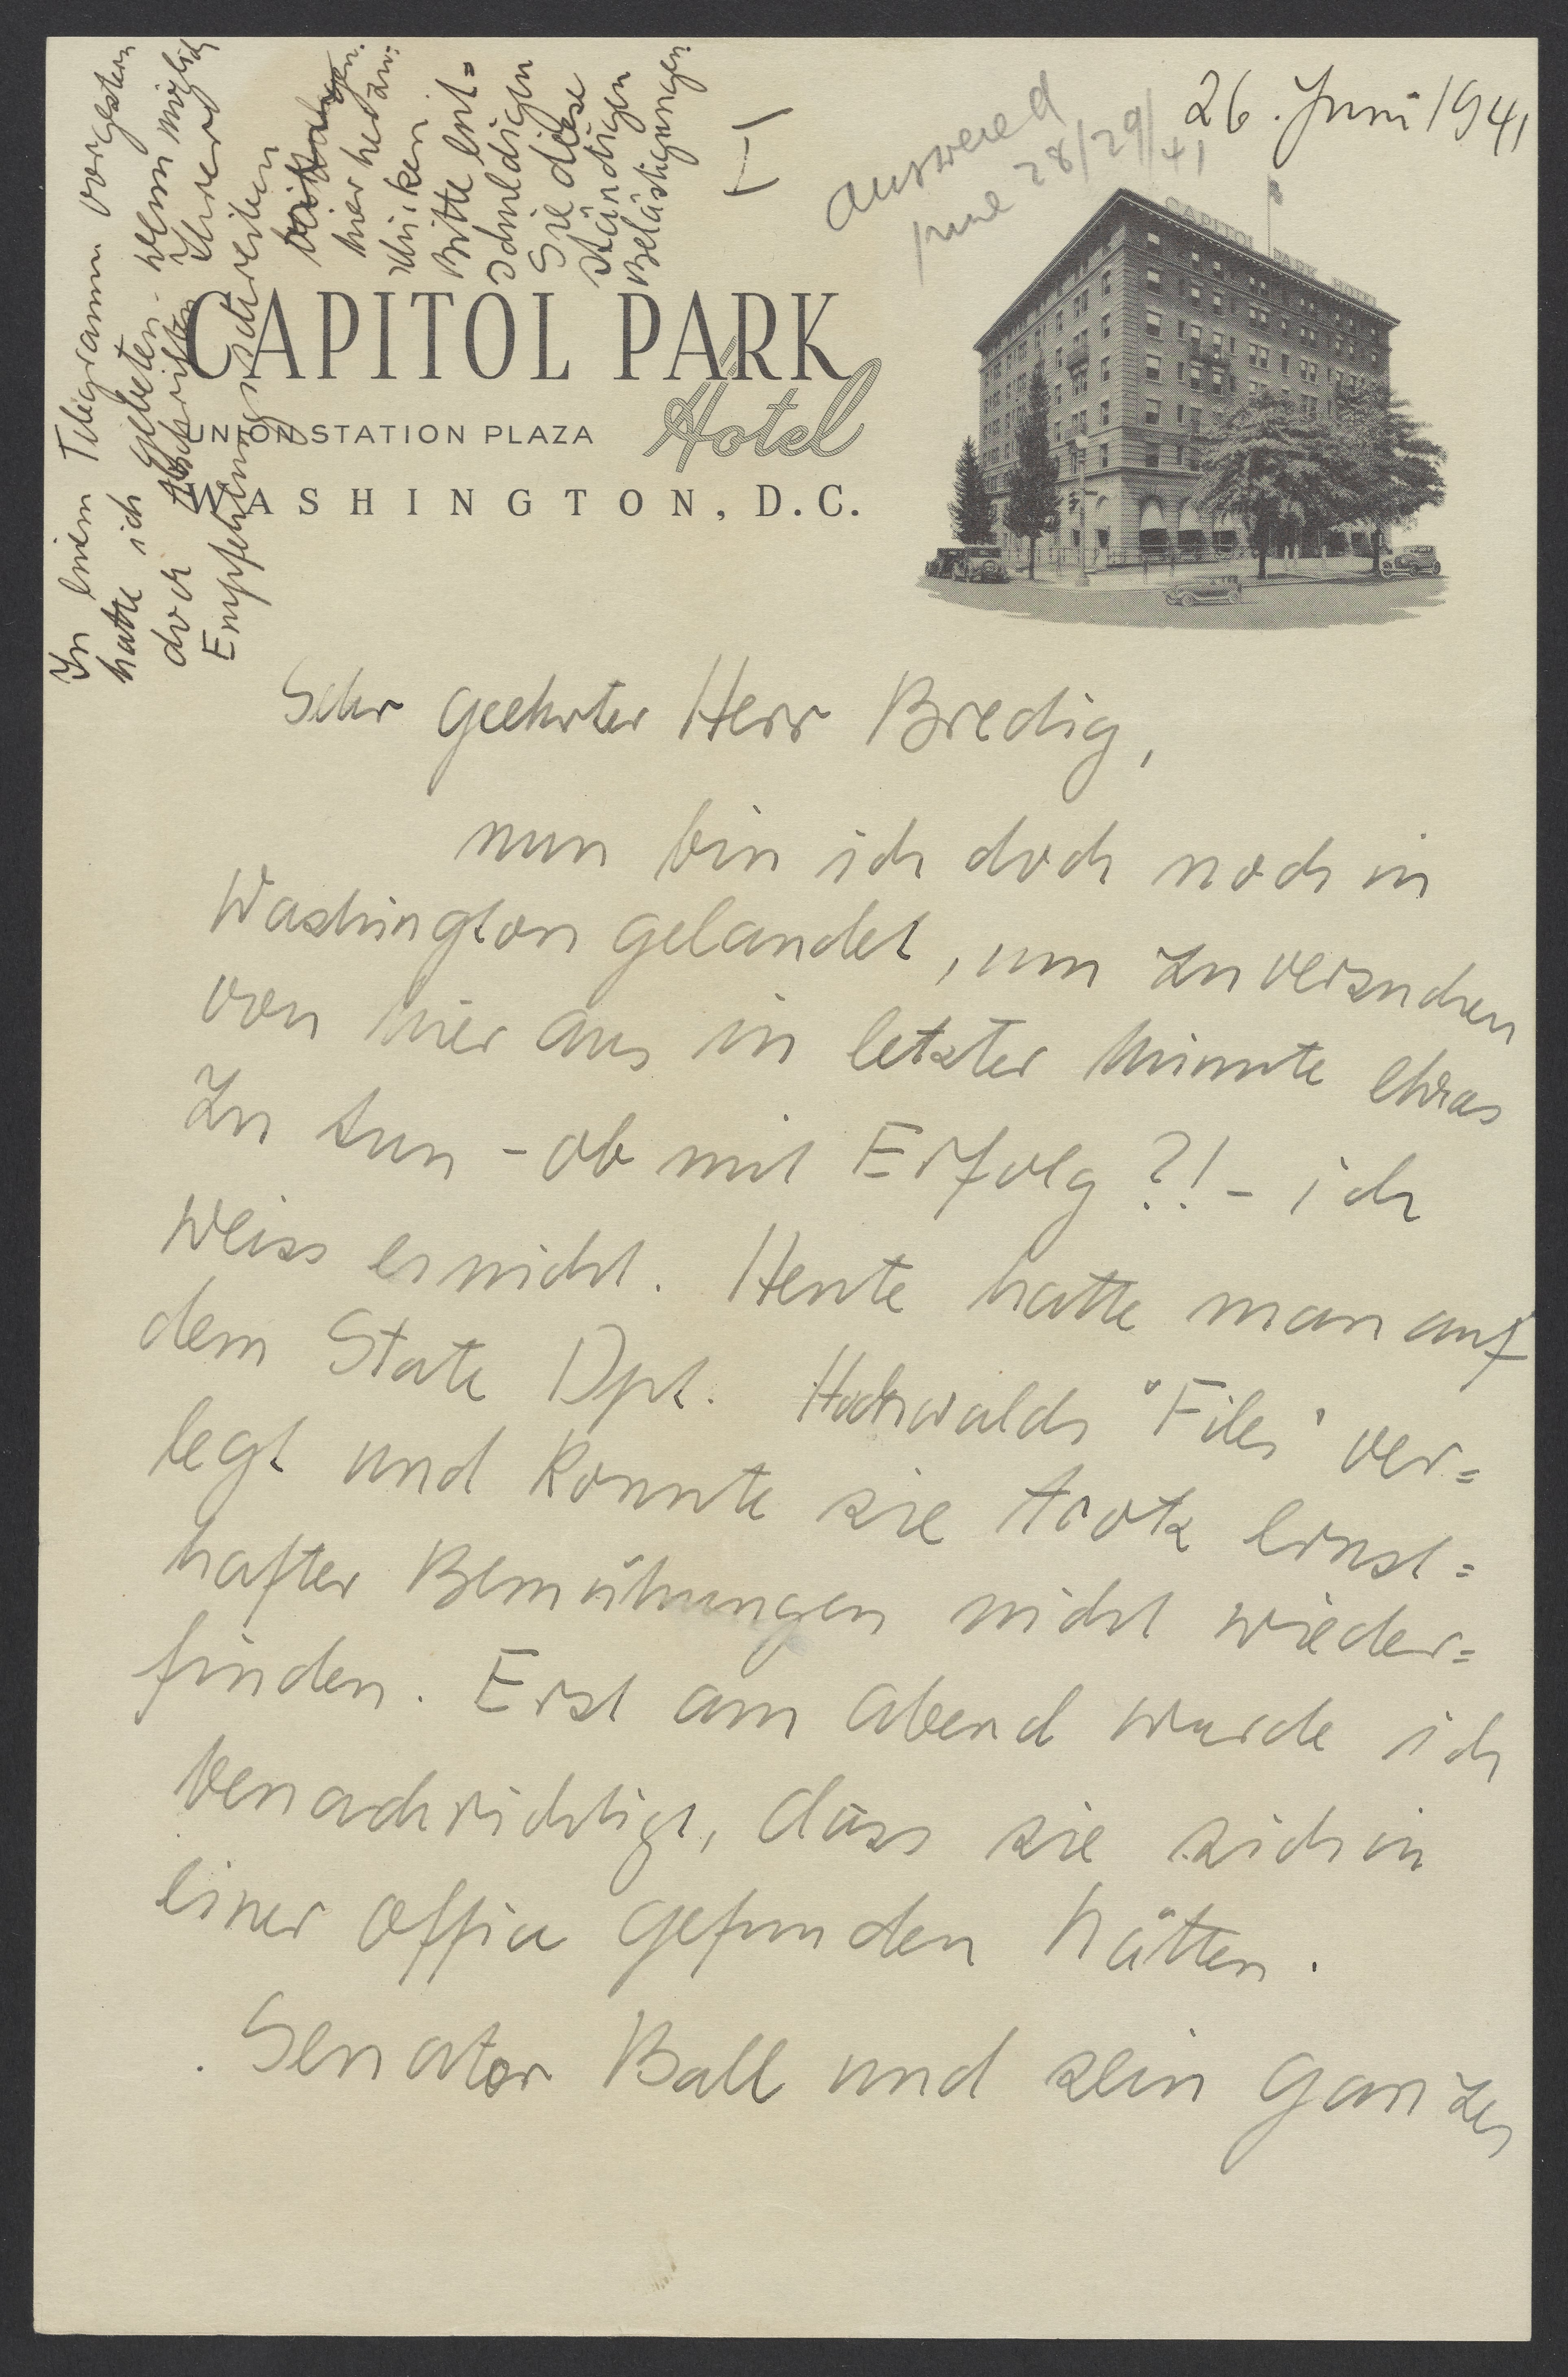 26. Juni 1941
answered
june 28/29/41
In einem Telegramm vorgestern
hatte ich gebeten - wenn möglich
doch Abschriften Ihrer
Empfehlungsschreiben
hierher an
Bitte ent=
schuldigen
Sie diese
ständigen
Belästigungen.
CAPITOL PARK HOTEL
CAPITOL PARK
Hotel
UNION STATION PLAZA
WASHINGTON, D.C.
Sehr geehrter Herr Bredig,
nun bin ich doch noch in
Washington gelandet, um zu versuchen
von hier aus in letzter Minute etwas
zu tun - ob mit Erfolg?! - ich
weiss es nicht. Heute hatte man auf
dem State Dpt. Hochwalds "Files" ver=
legt und konnte sie trotz ernst=
hafter Bemühungen nicht wieder=
finden. Erst am Abend wurde ich
benachrichtigt, dass sie sich in
einer Office gefunden hätten.
Senator Ball und sein ganzes